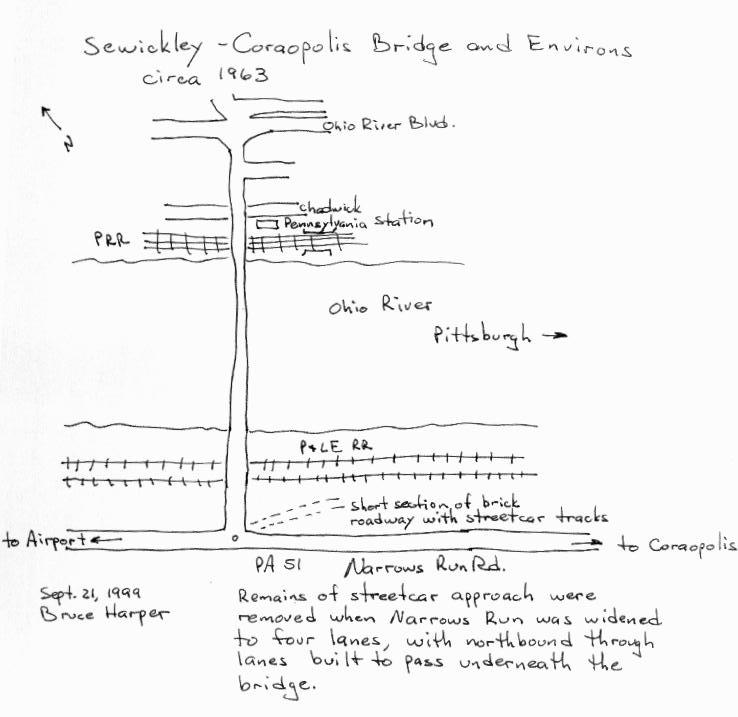 Sewickley - Coraopolis Bridge and Environs
circa 1963
N
Ohio River Blvd.
Chadwick
Pennsylvania Station
PRR
Ohio River
Pittsburgh →
P&LE RR
short section of brick
roadway with streetcar tracks
to Airport ←
→ to Coraopolis
PA 51 Narrows Run Rd.
Sept. 21, 1999
Bruce Harper
Remains of streetcar approach were
removed when Narrows Run was widened
to four lanes, with northbound through
lanes built to pass underneath the
bridge.